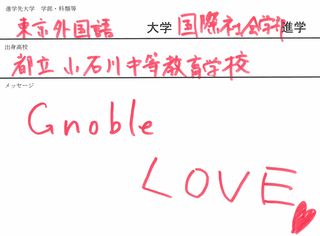 進学先大学 学部・科類等
東京外国語 大学 国際社会学部 進学
出身高校
都立小石川中等教育学校
メッセージ
Gnoble
LOVE